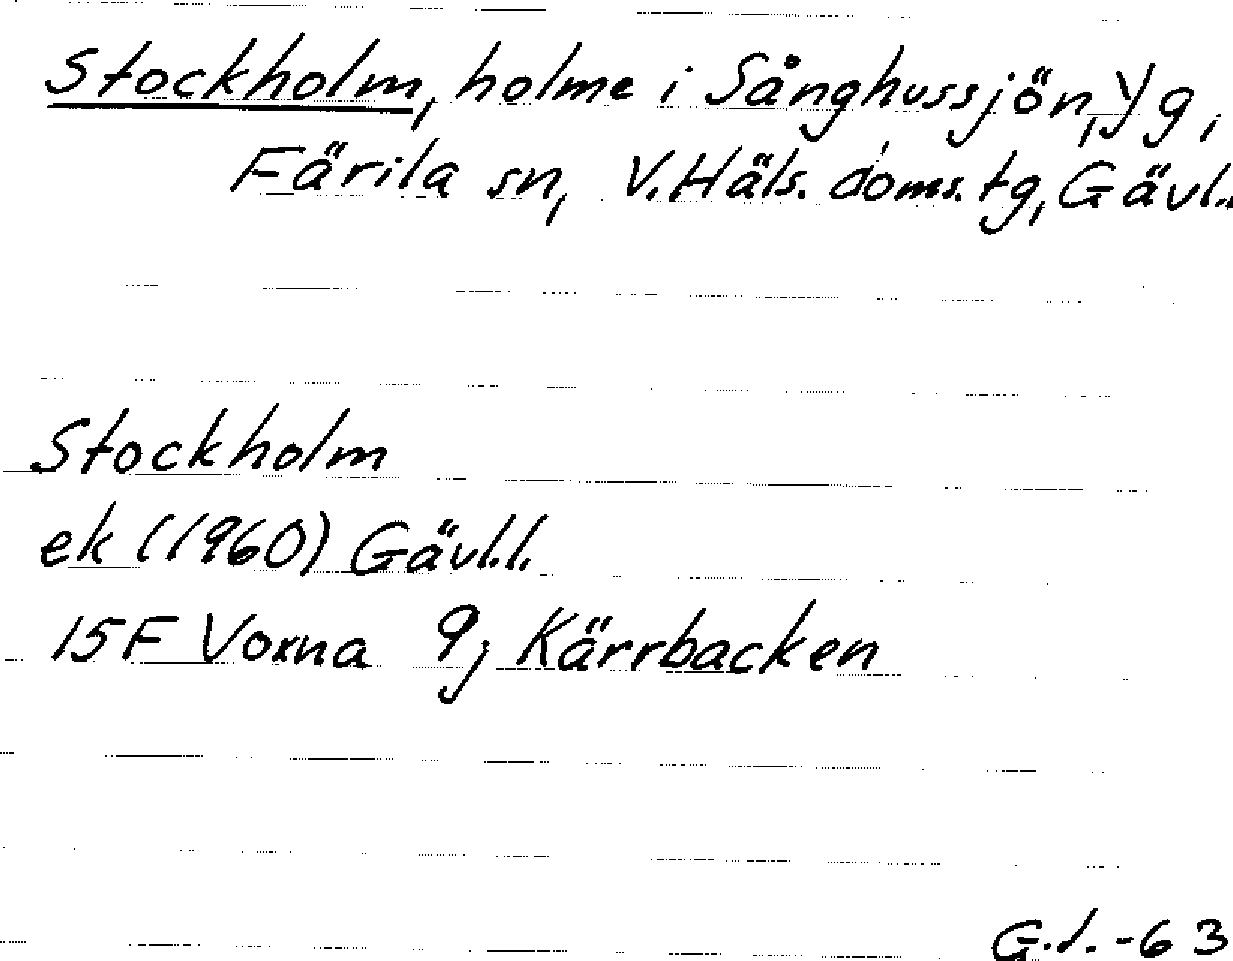 Stockholm, holme i Sånghussjön, Yg,
Färila sn, V. Häls. doms. tg, Gävl.
Stockholm
ek (1960) Gävl.l.
15F Voxna 9j Kärrbacken
G.d. -63